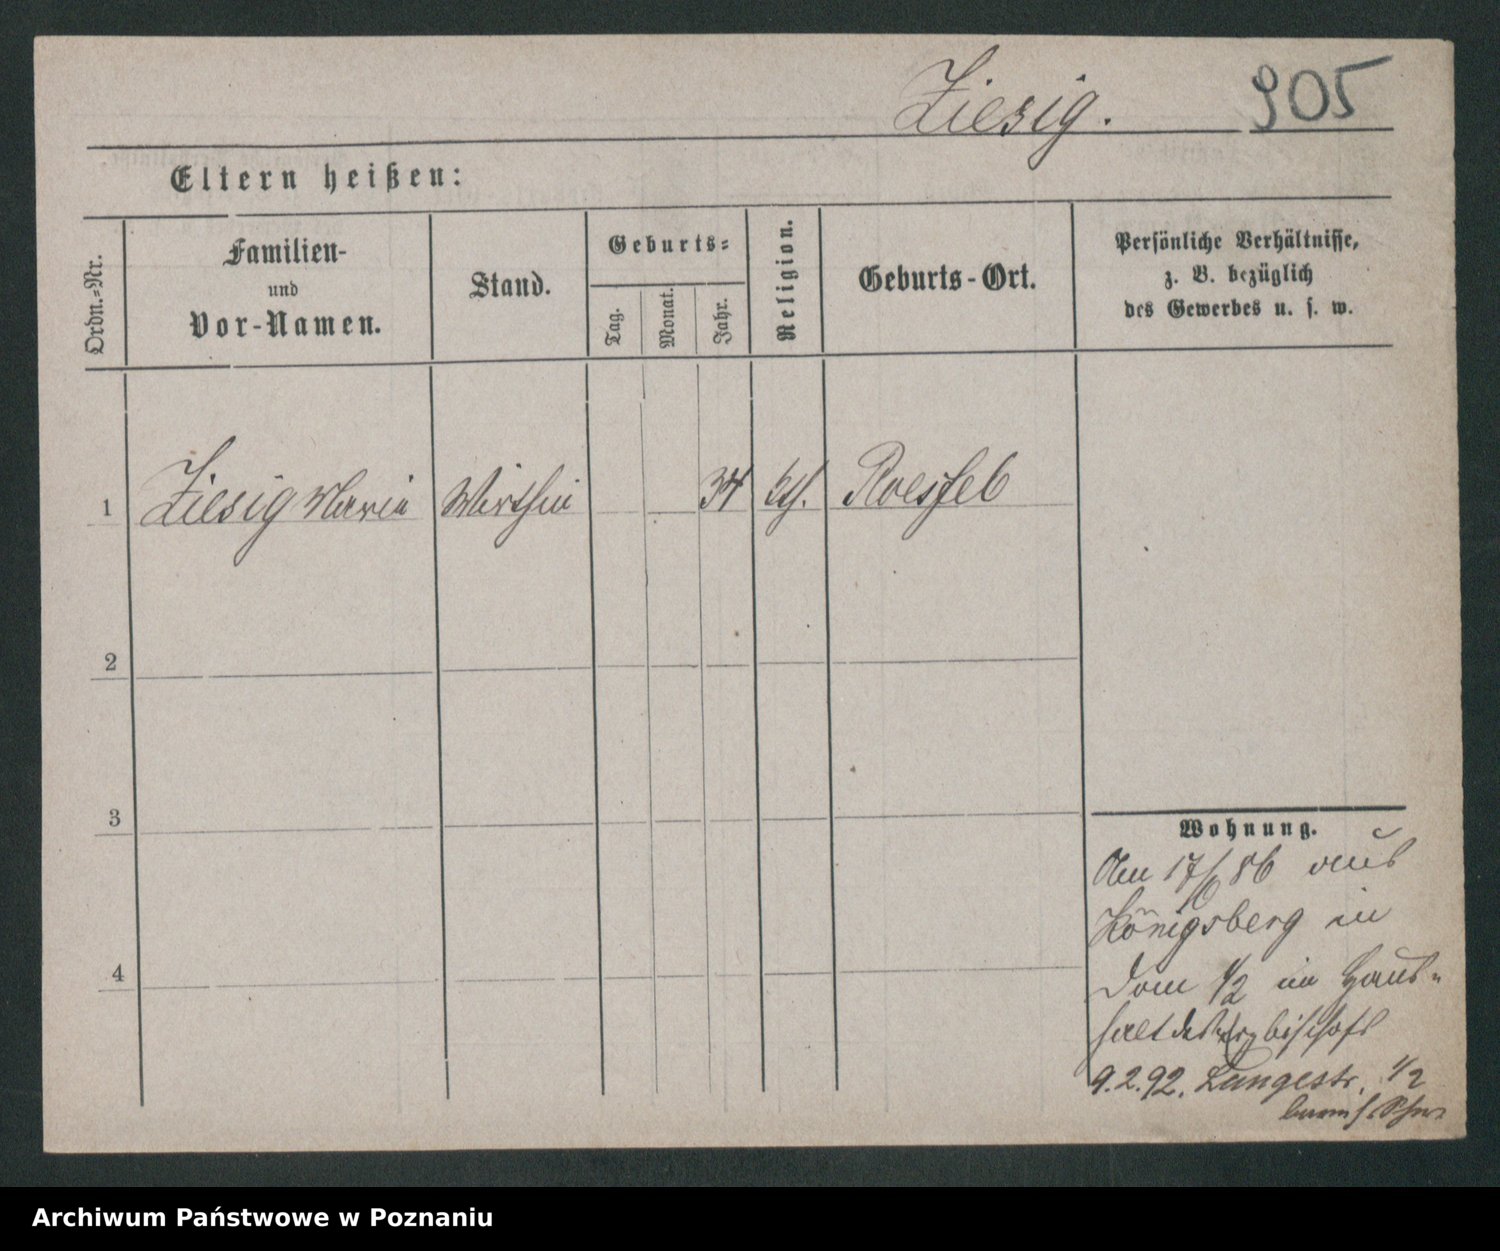 Ziesig. 905
Eltern heißen:
Ordn.=Nr.
Familien-
und
Vor-Namen.
Stand.
Geburts=
Tag.
Monat.
Jahr.
Religion.
Geburts-Ort.
Persönliche Verhältnisse,
z. B. bezüglich
des Gewerbes u. s. w.
1 Ziesig Maria Wirthin 34 kth. Roessel
2
3
4
Wohnung.
Am 17/6 86 aus
Königsberg in
Dom 1/2 im Haus=
halt des Erzbischofs
9.2.92. Langestr. 1/2
Archiwum Państwowe w Poznaniu